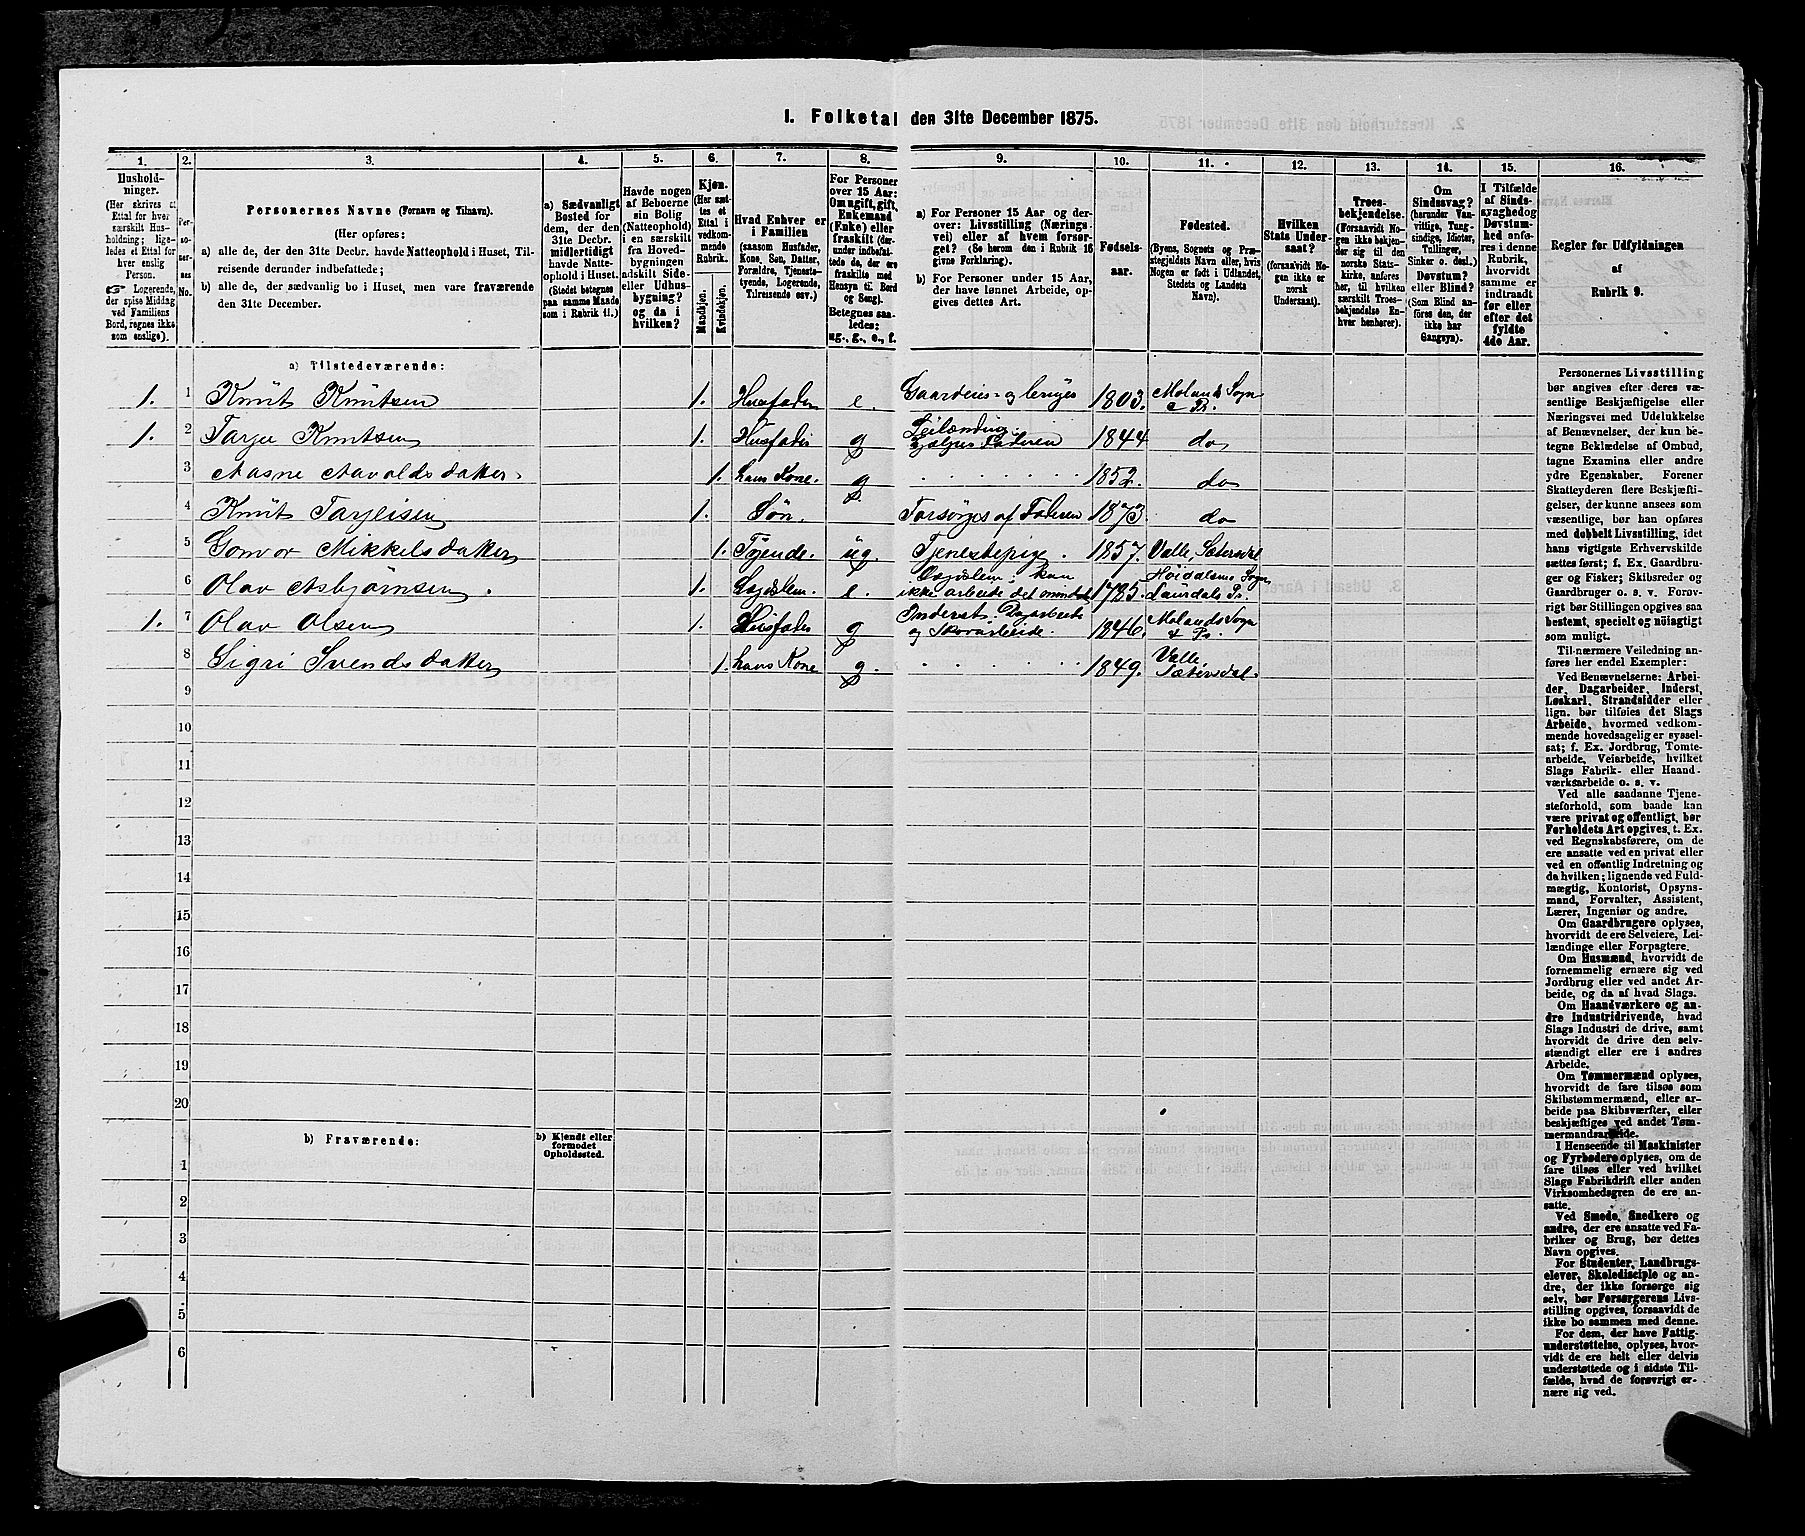 I. Folketal den 31te December 1875.
1. 2. 3. 4. 5. 6. 7. 8. 9. 10. 11. 12. 13. 14. 15. 16.
Hushold-
ninger.
(Her skrives et
Ettal for hver
særskilt Hus-
holdning; lige-
ledes et Ettal
for hver enslig
Person.
☞ Logerende,
der spise Middag
ved Familiens
Bord, regnes ikke
som enslige).
Per-
so-
ner-
nes
No.
Personernes Navne (Fornavn og Tilnavn).
(Her opføres:
a) alle de, der den 31te Decbr. havde Natteophold i Huset, Til-
reisende derunder indbefattede;
b) alle de, der sædvanlig bo i Huset, men vare fraværende
den 31te December.
a) Sædvanligt
Bosted for
dem, der den
31te Decbr.
midlertidigt
havde Natte-
ophold i Huset.
(Stedet betegnes
paa samme Maade
som i Rubrik 11.)
Havde nogen
af Beboerne
sin Bolig
(Natteophold)
i en særskilt
fra Hoved-
bygningen
adskilt Side-
eller Udhus-
bygning?
og da i
hvilken?
Kjøn.
(Her sæt-
tes et
Ettal i
vedkom-
mende
Rubrik.
Mandkjøn.
Kvindekjøn.
Hvad Enhver er
i Familien
(saasom Husfader,
Kone, Søn, Datter,
Forældre, Tjeneste-
tyende, Logerende,
Tilreisende osv.)
For Personer
over 15 Aar:
Om ugift, gift,
Enkemand
(Enke) eller
fraskilt (der-
under indbefat-
tede de, der ere
fraskilte med
Hensyn til Bord
og Seng).
Betegnes saa-
ledes:
ug., g., e., f.
a) For Personer 15 Aar og der-
over: Livsstilling (Nærings-
vei) eller af hvem forsør-
get? (Se herom den i Rubrik 16
givne Forklaring).
b) For Personer under 15 Aar,
der have lønnet Arbeide, op-
gives dettes Art.
Fødsels-
aar.
Fødested.
(Byens, Sognets og Præ-
stegjeldets Navn eller, hvis
Nogen er født i Udlandet,
Stedets og Landets
Navn).
Hvilken
Stats Under-
saat?
(forsaavidt No-
gen ikke er
norsk
Undersaat).
Troes-
bekjendelse.
(Forsaavidt No-
gen ikke bekjen-
der sig til den
norske Stats-
kirke, anføres
her, til hvilken
særskilt Troes-
bekjendelse En-
hver henhører).
Om
Sindssvag?
(herunder Van-
vittige, Tung-
sindige, Idioter,
Tullinger,
Sinker o. desl.)
Døvstum?
eller Blind?
(Som Blind an-
føres den, der
ikke har
Gangsyn).
I Tilfælde
af Sinds-
svaghed og
Døvstum-
hed anfø-
res i denne
Rubrik,
hvorvidt
samme er
indtraadt
før eller
efter det
fyldte
4de Aar.
Regler for Udfyldningen
af
Rubrik 9.
a) Tilstedeværende:
1. 1 Knut Knutsen 1. Husfader e. Gaardeier og bruger 1803. Molands Sogn & Pr.
1. 2 Tarjei Knutsen 1. Husfader g Leilænding. hjelper Faderen 1844 do
3 Aasne Aavoldsdatter. 1. hans Kone. g 1852. do
4 Knut Tarjeisen 1. Søn. Forsørges af Faderen 1873 do
5 Gonvor Mikkelsdatter 1. Tjende. ug. Tjenestepige. 1857. Valle Sætersdal
6 Olav Asbjørnsen. 1. Lægdslem. e. Lægdslem; kan ikke arbeide det mindste 1785. Høidalsmo Sogn Laurdals Pr.
1. 7 Olav Olsen 1. Husfader g Inderst. Dagarbeide og Skovarbeide. 1846. Molands Sogn & Pr.
8 Sigri Svendsdatter 1. hans Kone g. 1849. Valle Sætersdal.
9
10
11
12
13
14
15
16
17
18
19
20
b) Fraværende:
b) Kjendt eller
formodet
Opholdssted.
1
2
3
4
5
6
Personernes Livsstilling
bør angives efter deres væ-
sentlige Beskjæftigelse eller
Næringsvei med Udelukkelse
af Benævnelser, der kun be-
tegne Beklædelse af Ombud,
tagne Examina eller andre
ydre Egenskaber. Forener
Skatteyderen flere Beskjæfti-
gelser, der kunne ansees som
væsentlige, bør han opføres
med dobbelt Livsstilling, idet
hans vigtigste Erhvervskilde
sættes først; f. Ex. Gaardbru-
ger og Fisker; Skibsreder og
Gaardbruger o. s. v. Forøv-
rigt bør Stillingen opgives saa
bestemt, specielt og nøiagtigt
som muligt.
Til nærmere Veiledning an-
føres her endel Exempler:
Ved Benævnelserne: Arbei-
der, Dagarbeider, Inderst,
Løskarl, Strandsidder eller
lign. bør tilføies det Slags
Arbeide, hvormed vedkom-
mende hovedsagelig er syssel-
sat; f. Ex. Jordbrug, Tomte-
arbeide, Veiarbeide, hvilket
Slags Fabrik- eller Haand-
værksarbeide o. s. v.
Ved alle saadanne Tjene-
steforhold, som baade kan
være privat og offentligt, bør
Forholdets Art opgives, t. Ex.
ved Regnskabsførere, om de
ere ansatte ved en privat eller
ved en offentlig Indretning og
da hvilken; lignende ved Fuld-
mægtig, Kontorist, Opsyns-
mand, Forvalter, Assistent,
Lærer, Ingeniør og andre.
Om Gaardbrugere oplyses,
hvorvidt de ere Selveiere, Lei-
lændinge eller Forpagtere.
Om Husmænd, hvorvidt de
fornemmelig ernære sig ved
Jordbrug eller ved andet Ar-
beide, og da af hvad Slags.
Om Haandværkere og an-
dre Industridrivende, hvad
Slags Industri de drive, samt
hvorvidt de drive den selv-
stændigt eller ere i andres
Arbeide.
Om Tømmermænd oplyses,
hvorvidt de fare tilsøs som
Skibstømmermænd, eller ar-
beide paa Skibsværfter, eller
beskjæftiges ved andet Tøm-
mermandsarbeide.
I Henseende til Maskinister
og Fyrbødere oplyses, om de
fare tilsøs eller ved hvilket
Slags Fabrikdrift eller anden
Virksomhedsgren de ere an-
satte.
Ved Smede, Snedkere og
andre, der ere ansatte ved Fa-
briker og Brug, bør dettes
Navn opgives.
For Studenter, Landbrugs-
elever, Skoledisciple og an-
dre, der ikke forsørge sig
selv, bør Forsørgerens Livs-
stilling opgives, forsaavidt de
ikke bo sammen med denne.
For dem, der have Fattig-
understøttelse, oplyses, hvor-
vidt de ere helt eller delvis
understøttede og i sidste Til-
fælde, hvad de forøvrigt er-
nære sig ved.